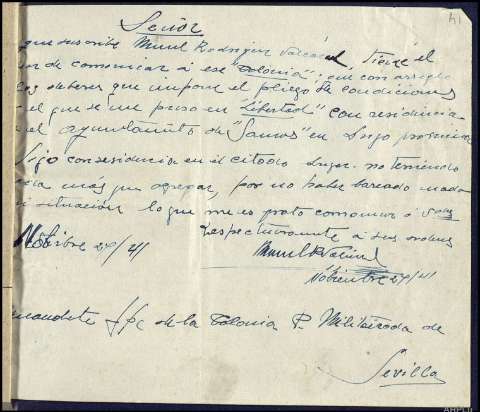 14
Señor
que suscribe Manuel Rodriguez Valcárcel, tiene el
or de comunicar á ese "Colonia"; que con arreglo
los deberes que impone el pliego de condiciones
el que se me puso en "Libertad" con residencia
el ayuntamiento de "Samos" en Lugo provincia
Sigo con residencia en el citado lugar. no teniendo
cosa más que agregar, por no haber variado nada
mi situación lo que me es grato comunicar á
respectuosamente á sus ordenes
Nobibre 27/41
Nobiembre 27/41
mandante Jfe de la Colonia P. Militarizada de
Sevilla